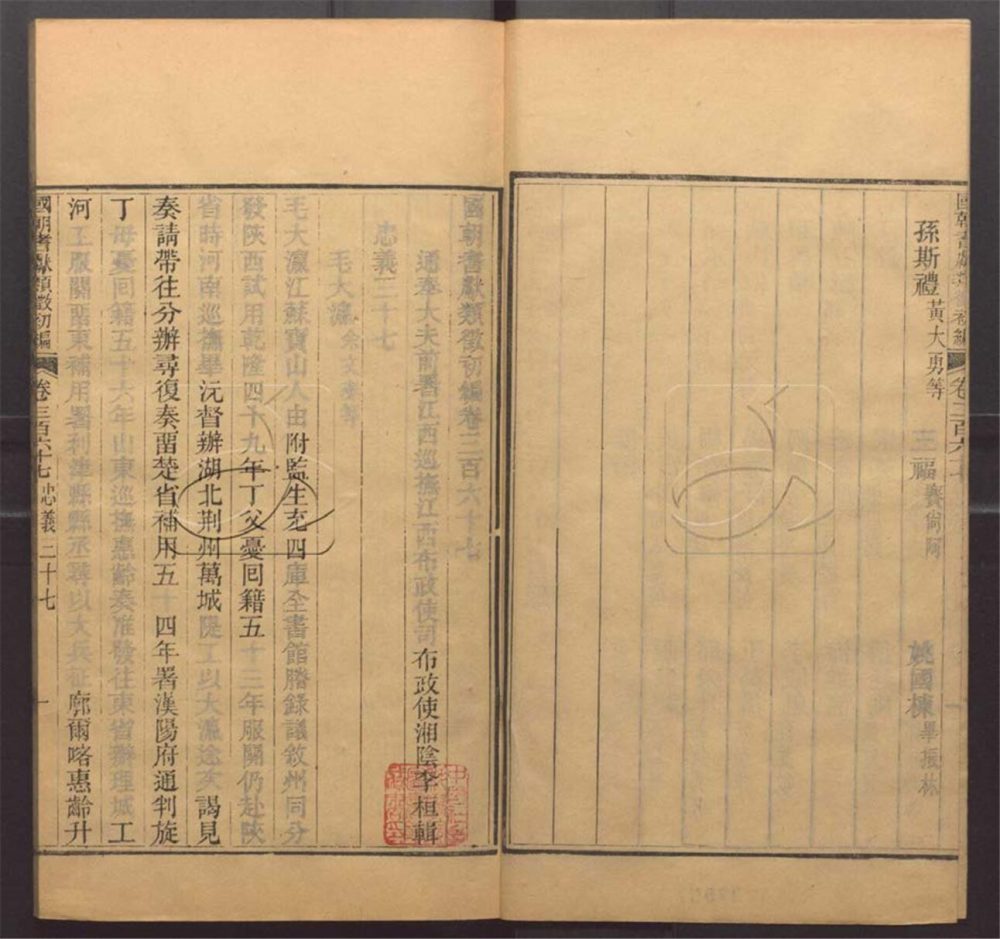 孫斯禮 黃大勇等 三福 賽尚阿 姚國棟 畢振林
國朝耆獻類徵初編 卷三百六十七
國朝耆獻類徵初編卷三百六十七
通奉大夫前署江西巡撫江西布政使司布政使湘陰李桓輯
忠義二十七
毛大瀛
毛大瀛江蘇寶山人由附監生充四庫全書館謄錄議敘州同分
發陝西試用乾隆四十九年丁父憂回籍五十三年服闋仍赴陝
省時河南巡撫畢沅督辦湖北荊州萬城隄工以大瀛途次謁見
奏請帶往分辦尋復奏畱楚省補用五十四年署漢陽府通判旋
丁母憂回籍五十六年山東巡撫惠齡奏准發往東省辦理城工
河工服闋畱東補用署利津縣縣丞尋以大兵征廓爾喀惠齡升
國朝耆獻類徵初編 卷三百六十七 忠義二十七 一